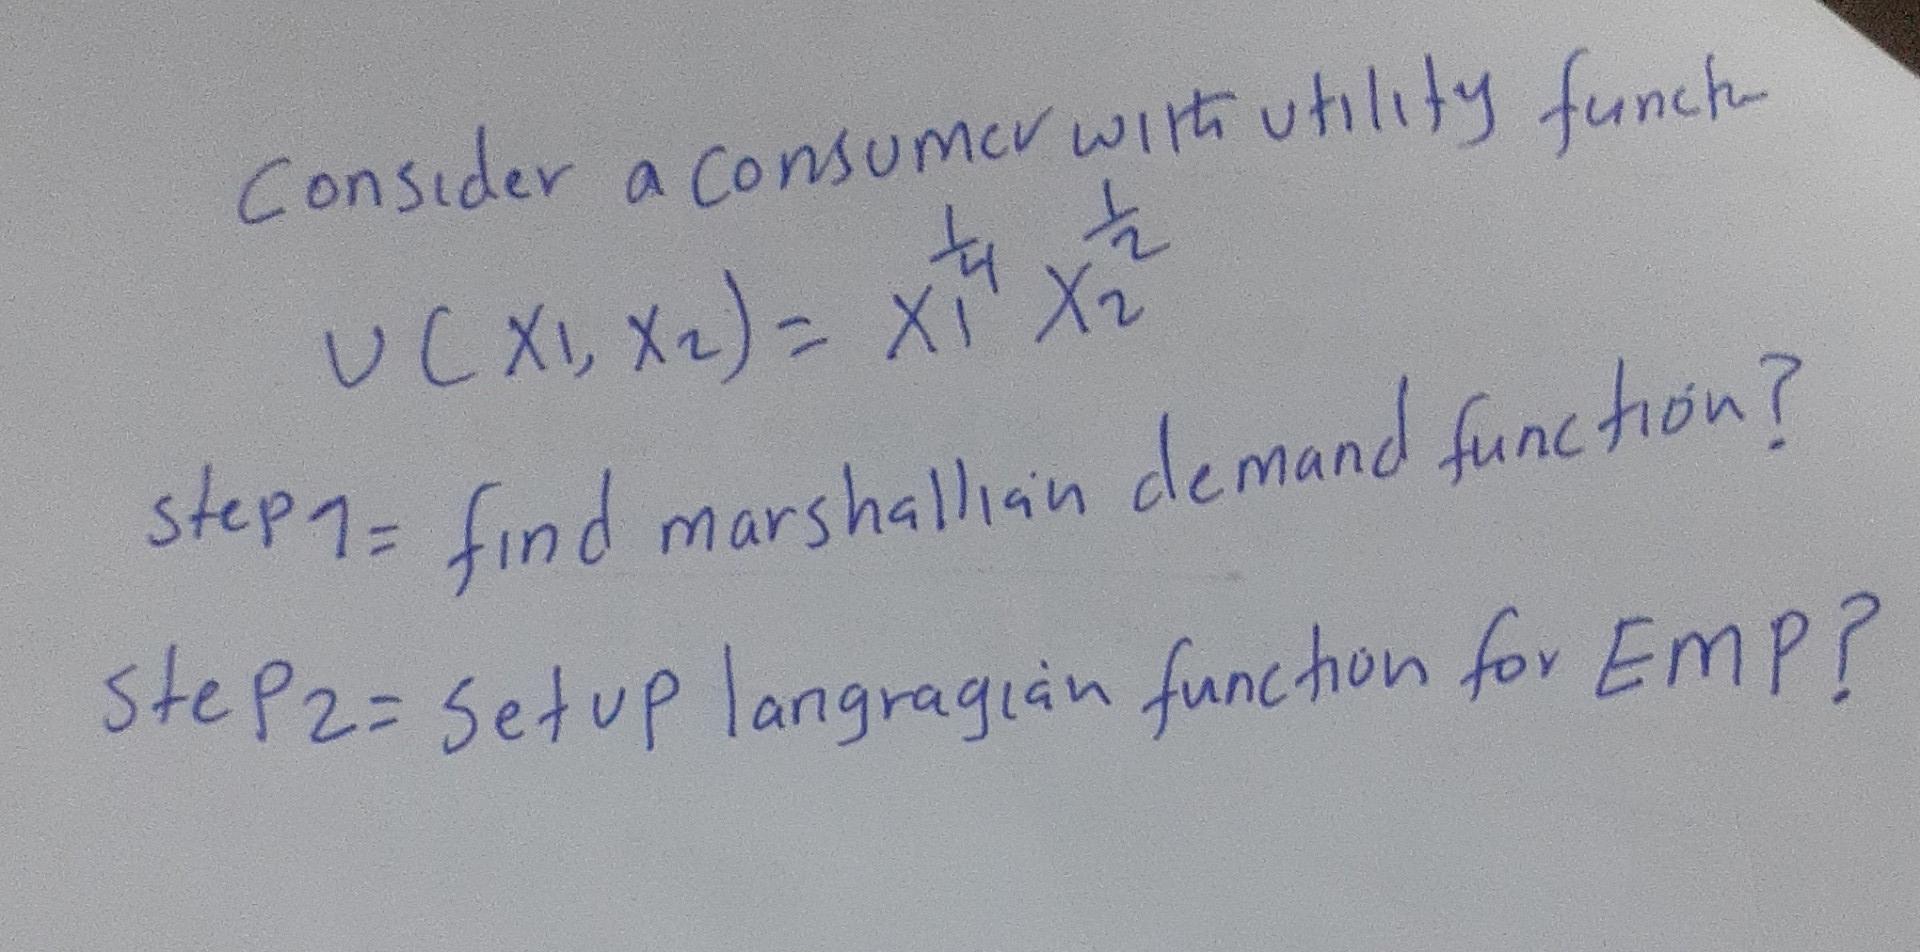 Consider a consumer with utility funct
U(X1, X2) = X1^1/4 X2^1/2
step1= find marshallian demand function?
Step2= Setup langragian function for EMP?